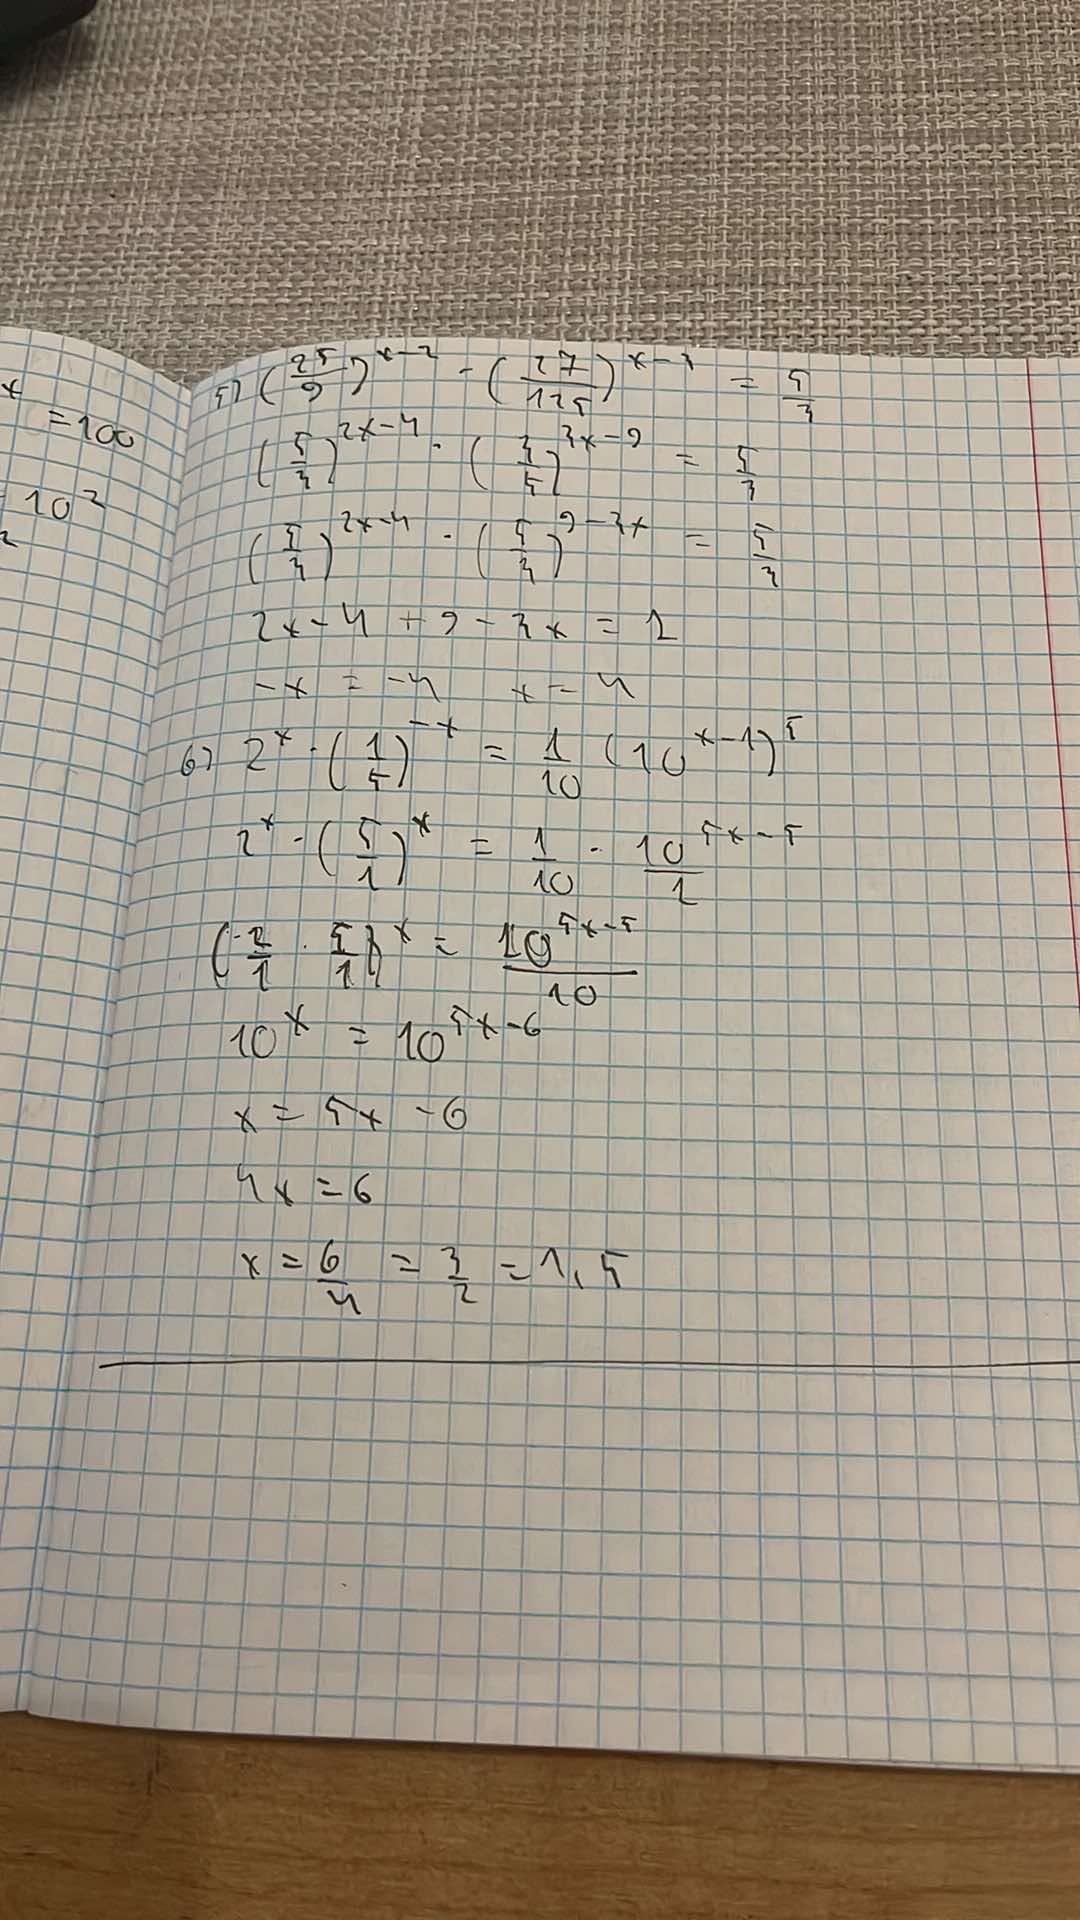 x
= 100
= 10²
2
5) (25/9)^(x-2) · (27/125)^(x-3) = 5/3
(5/3)^(2x-4) · (3/5)^(3x-9) = 5/3
(5/3)^(2x-4) · (5/3)^(9-3x) = 5/3
2x - 4 + 9 - 3x = 1
-x = -4 x = 4
6) 2^x · (1/5)^(-x) = 1/10 (10^(x-1))^5
2^x · (5/1)^x = 1/10 · 10^(5x-5)/1
(2/1 · 5/1)^x = 10^(5x-5)/10
10^x = 10^(5x-6)
x = 5x - 6
4x = 6
x = 6/4 = 3/2 = 1,5